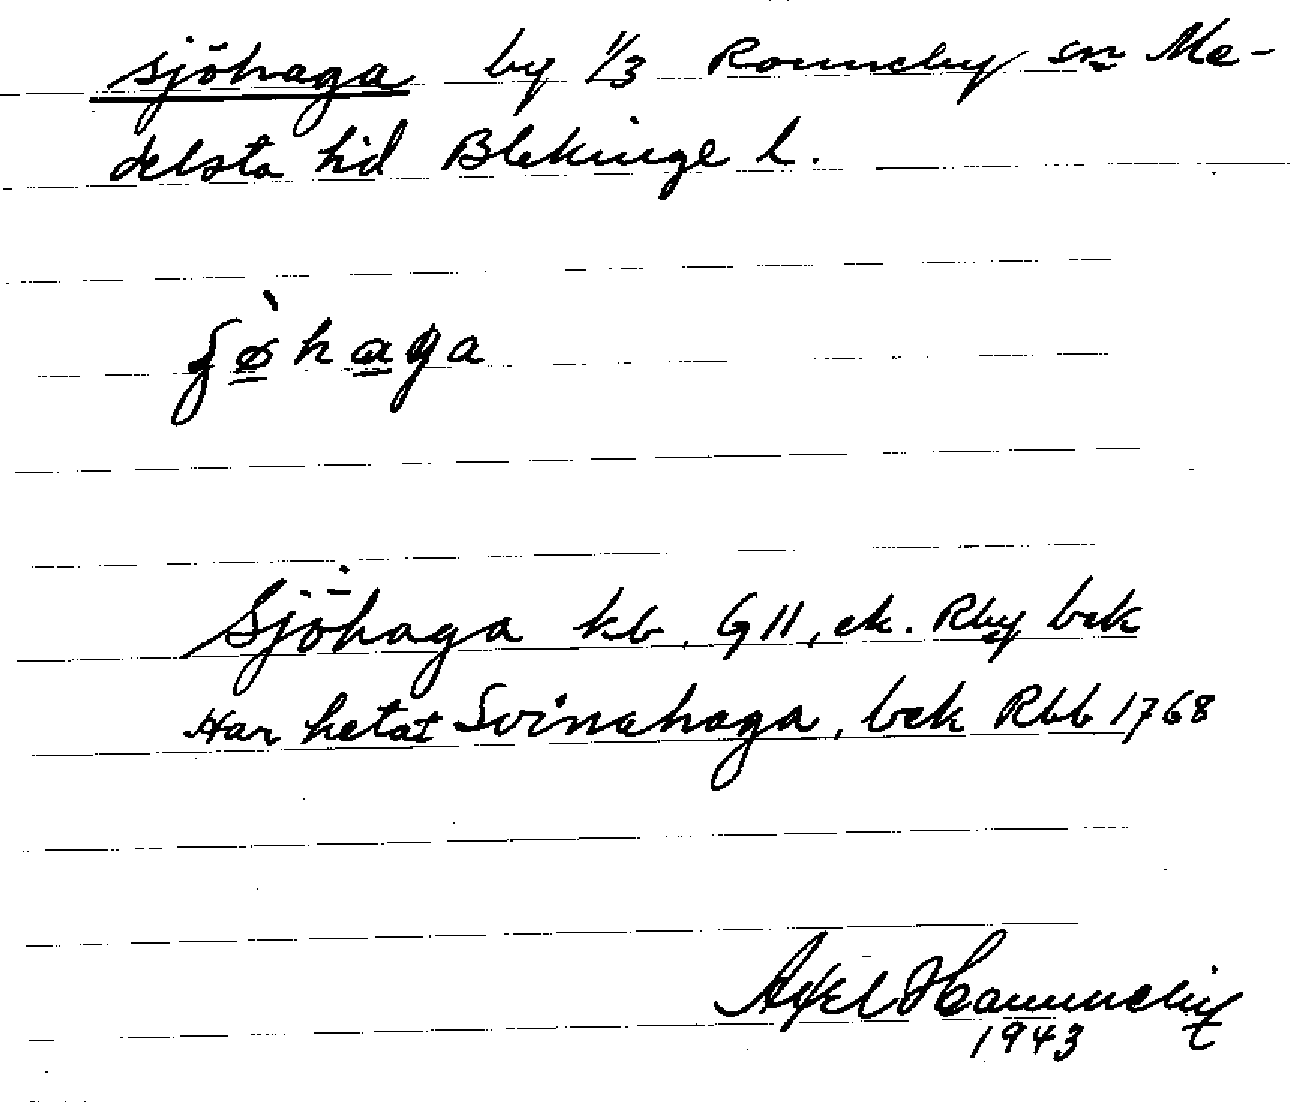 Sjöhaga by 1/3 Ronneby sn Me-
delsta hd Blekinge l.
Sjöhaga kb, GII, ek. Rby bek
Har hetat Svinahaga, bek Rbb 1768
Axel
1943